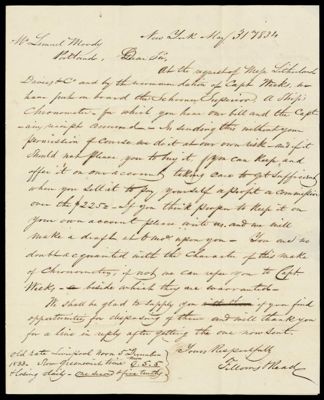 New York May 31st 1834
Mr Lemuel Moody
Portland, Dear Sir,
At the request of Mess
and by the recommendation of Capt Weeks, we
have put on board the Schooner Superior A Ship's
Chronometer, for which you have our bill and the Capt
-ains receipt annexed - In sending this without your
permission of course we do it at our own risk - and if it
should not please you to buy it, you can keep and
offer it on our account, taking care to get sufficient
when you sell it to pay yourself a profit or commission
over the $225 - If you think proper to keep it on
your own account please write us, and we will
make a draft at mos upon you - You are no
doubt acquainted with the Character of this make
of Chronometers, if not we can refer you to Capt
Weeks, - beside which they are warranted -
We shall be glad to supply you if you find
opportunities for disposing of them and will thank you
for a line in reply after getting the one now sent.
Yours Respectfully
Old rate Liverpool noon 5 December
1833. Slow Greenwich time 6.5.5
& losing daily - one second & five tenths